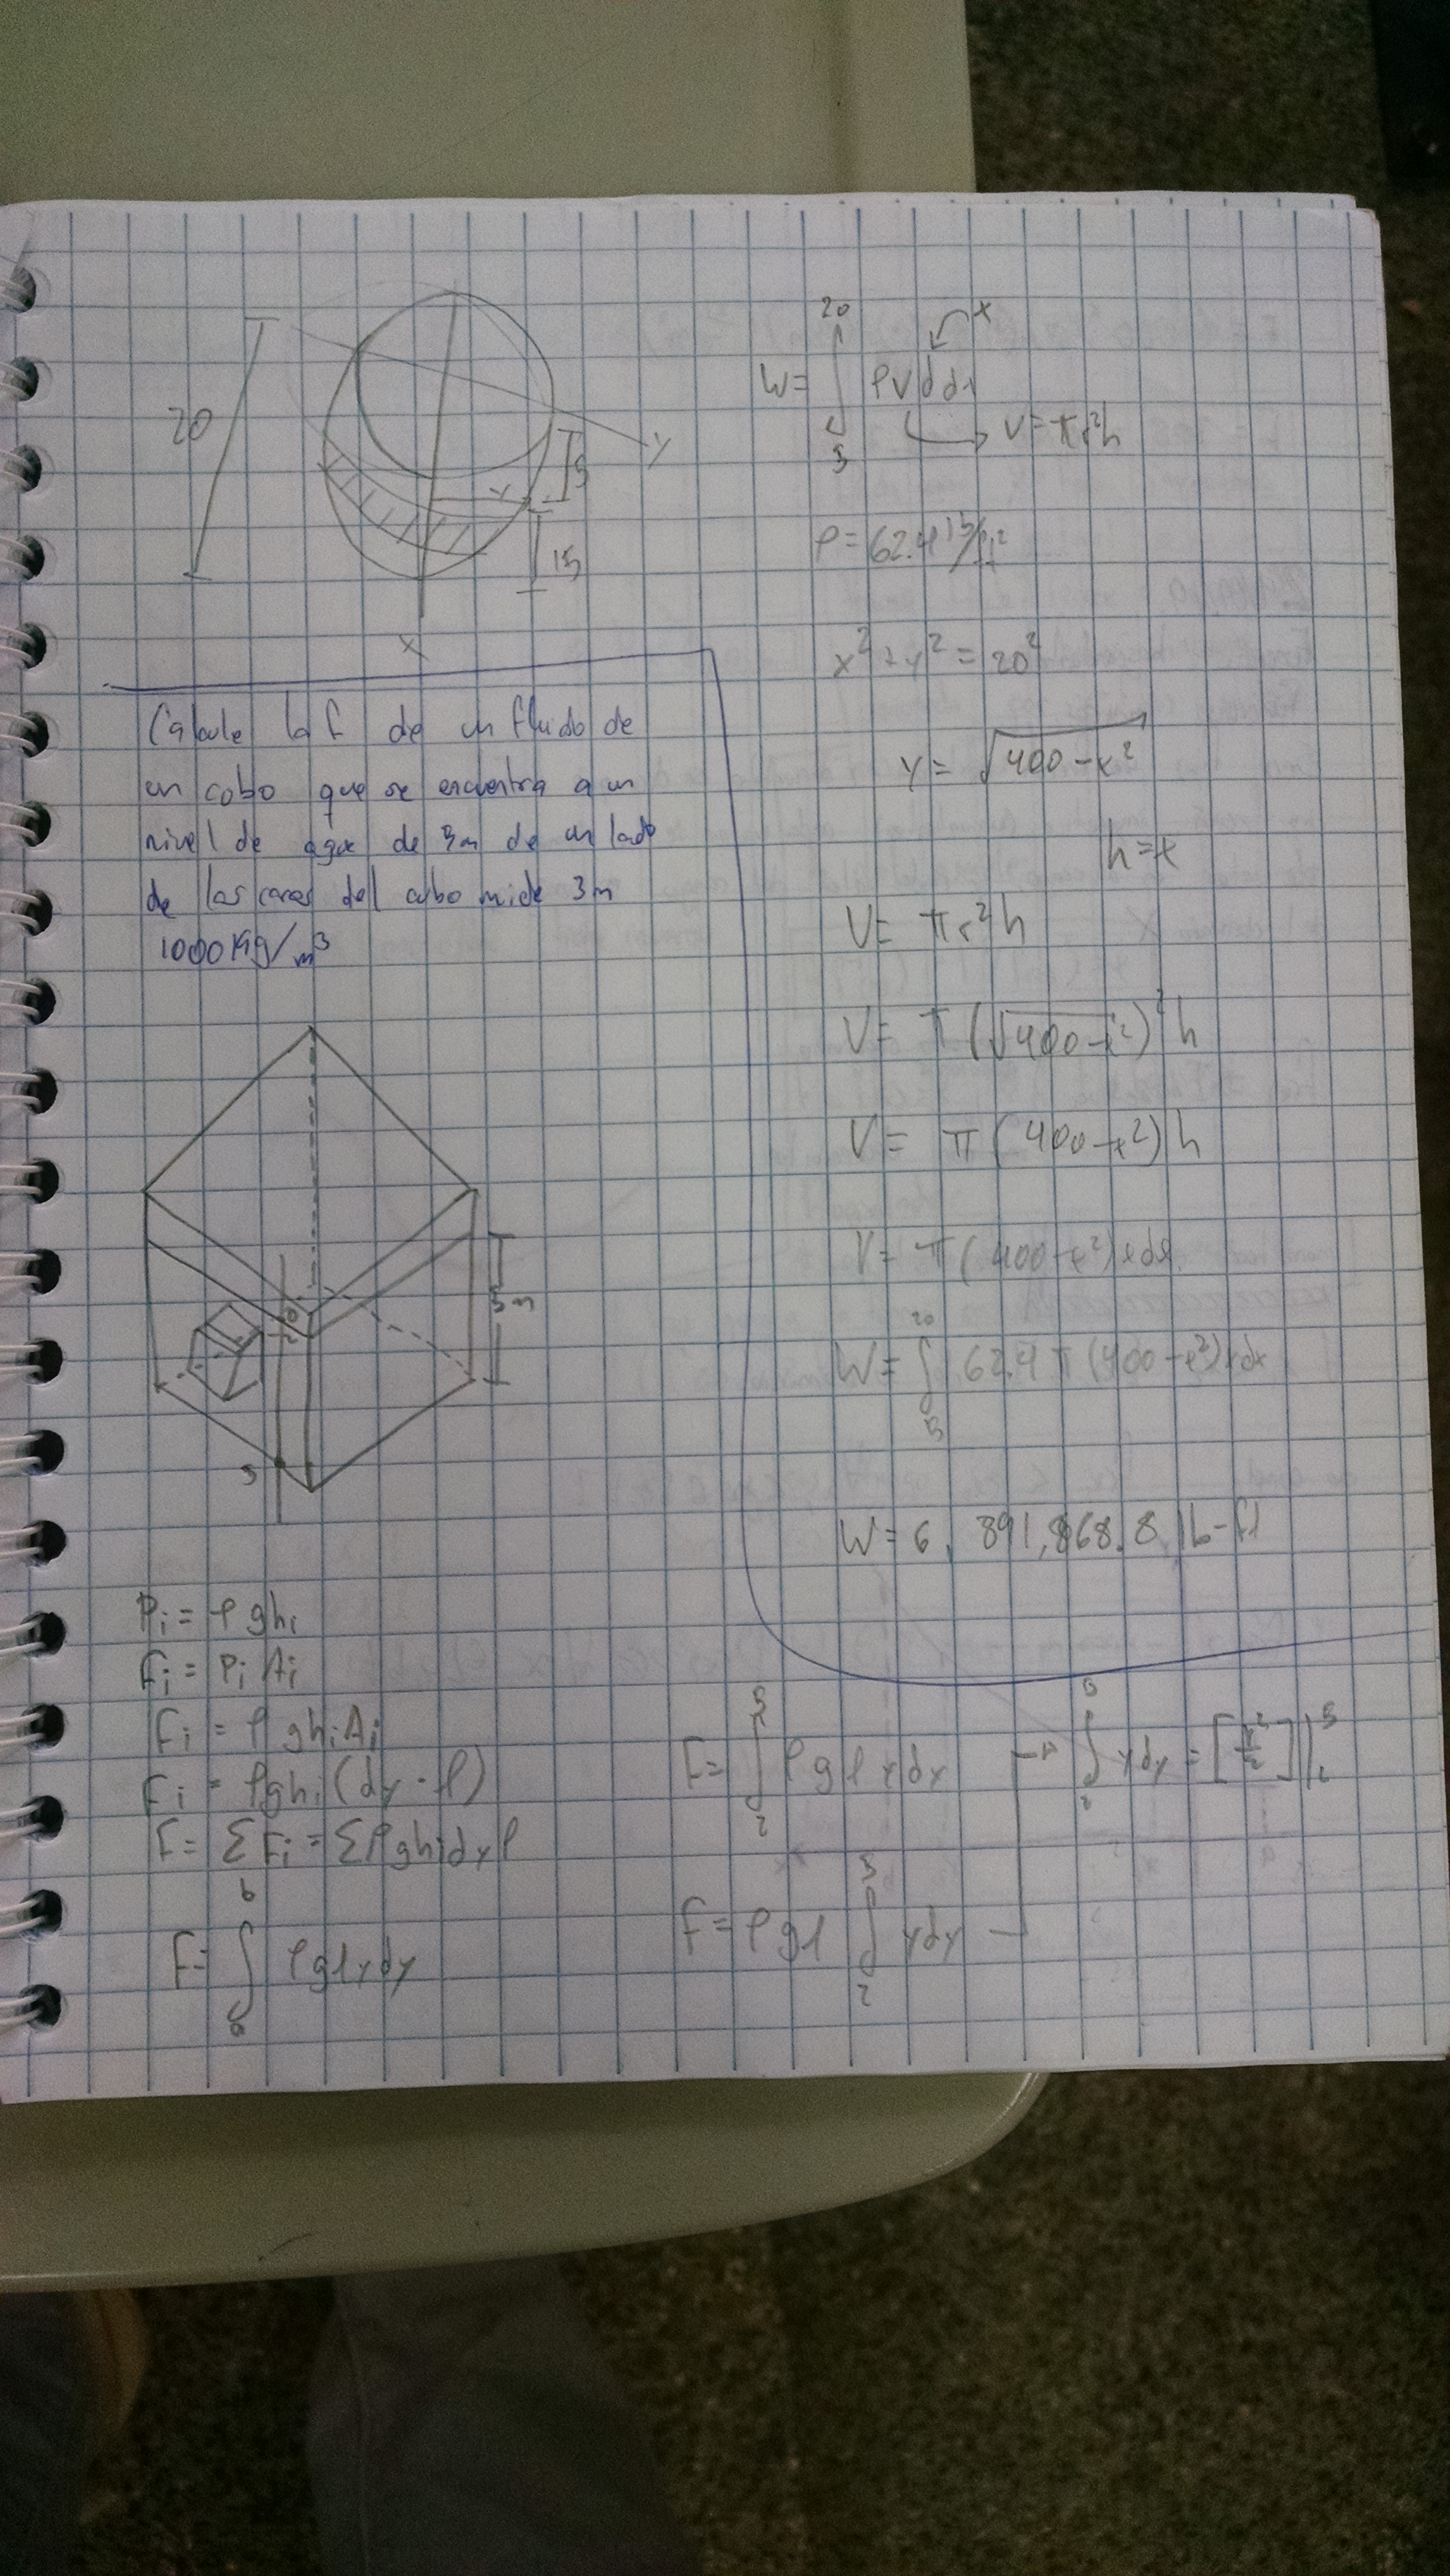 20
y
5
15
x
W = ∫ 20 5 ρ V d dx
x
V = πr²h
ρ = 62.4 lb/ft²
x² + y² = 20²
y = √400 - x²
h = x
V = πr²h
V = π(√400 - x²)² h
V = π(400 - x²) h
V = π(400 - x²) x dx
W = ∫ 20 5 62.4 π(400 - x²) x dx
W = 6, 891,868.8 lb-ft
Calcule la f de un fluido de
un cubo que se encuentra a un
nivel de agua de 5m de un lado
de las caras del cubo mide 3m
1000 Kg/m³
5m
0
2
5
Pi = ρghi
Fi = Pi Ai
Fi = ρghiAi
Fi = ρghi(dy · l)
F = ΣFi = Σρghidyl
F = ∫ b a ρglydy
F = ∫ 5 2 ρglydy → ∫ 5 2 ydy = [y²/2] | 5 2
F = ρgl ∫ 5 2 ydy